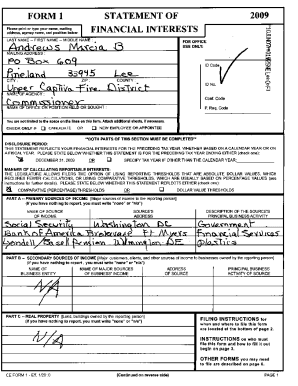 FORM 1 STATEMENT OF 2009
FINANCIAL INTERESTS
Please print or type your name, mailing
address, agency name, and position below:
LAST NAME - FIRST NAME - MIDDLE NAME
Andrews Marcia B
MAILING ADDRESS
PO Box 609
Pineland 33945 Lee
CITY ZIP COUNTY
Upper Captiva Fire District
NAME OF AGENCY
Commissioner
NAME OF OFFICE OR POSITION HELD OR SOUGHT
FOR OFFICE
USE ONLY:
ID Code
ID No.
Conf. Code
P. Req. Code
You are not limited to the space on the lines on this form. Attach additional sheets, if necessary.
CHECK ONLY IF CANDIDATE OR NEW EMPLOYEE OR APPOINTEE
**BOTH PARTS OF THIS SECTION MUST BE COMPLETED**
DISCLOSURE PERIOD:
THIS STATEMENT REFLECTS YOUR FINANCIAL INTERESTS FOR THE PRECEDING TAX YEAR, WHETHER BASED ON A CALENDAR YEAR OR ON
A FISCAL YEAR. PLEASE STATE BELOW WHETHER THIS STATEMENT IS FOR THE PRECEDING TAX YEAR ENDING EITHER (check one):
DECEMBER 31, 2009 OR SPECIFY TAX YEAR IF OTHER THAN THE CALENDAR YEAR:
MANNER OF CALCULATING REPORTABLE INTERESTS:
THE LEGISLATURE ALLOWS FILERS THE OPTION OF USING REPORTING THRESHOLDS THAT ARE ABSOLUTE DOLLAR VALUES, WHICH
REQUIRES FEWER CALCULATIONS, OR USING COMPARATIVE THRESHOLDS, WHICH ARE USUALLY BASED ON PERCENTAGE VALUES (see
instructions for further details). PLEASE STATE BELOW WHETHER THIS STATEMENT REFLECTS EITHER (check one):
COMPARATIVE (PERCENTAGE) THRESHOLDS OR DOLLAR VALUE THRESHOLDS
PART A -- PRIMARY SOURCES OF INCOME
(If you have nothing to report, you must write "none" or "n/a")
NAME OF SOURCE OF INCOME SOURCE'S ADDRESS DESCRIPTION OF THE SOURCE'S PRINCIPAL BUSINESS ACTIVITY
Social Security Washington DC Government
Bank of America Brokerage Ft Myers Financial Services
Pension Wilmington DE plastics
PART B -- SECONDARY SOURCES OF INCOME
(If you have nothing to report, you must write "none" or "n/a")
NAME OF BUSINESS ENTITY NAME OF MAJOR SOURCES OF BUSINESS' INCOME ADDRESS OF SOURCE PRINCIPAL BUSINESS ACTIVITY OF SOURCE
N/A
PART C -- REAL PROPERTY
(If you have nothing to report, you must write "none" or "n/a")
N/A
FILING INSTRUCTIONS for
when and where to file this form
are located at the bottom of page 2.
INSTRUCTIONS on who must
file this form and how to fill it out
begin on page 3.
OTHER FORMS you may need
to file are described on page 6.
CE FORM 1 (Continued on reverse side) PAGE 1